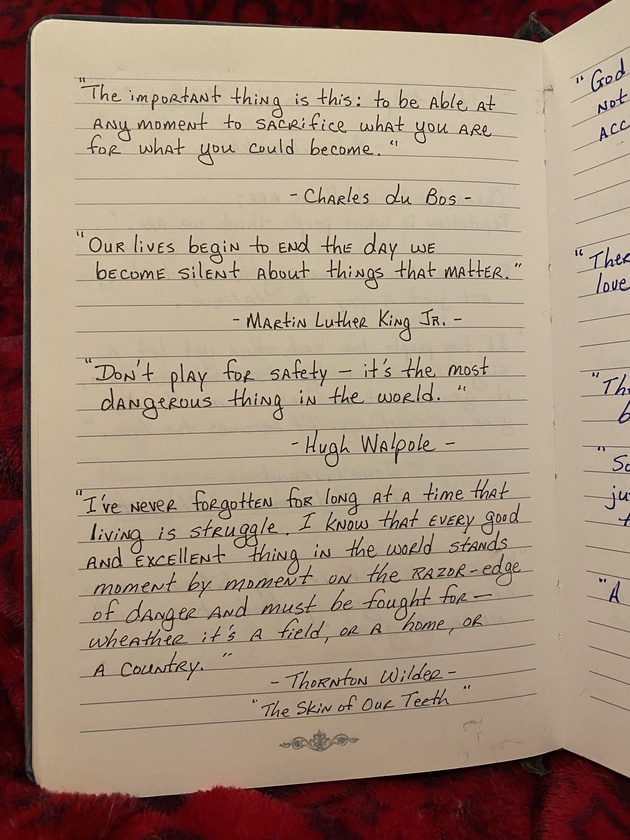 "The important thing is this: to be able at
any moment to sacrifice what you are
for what you could become."
- Charles du Bos -
"Our lives begin to end the day we
become silent about things that matter."
- Martin Luther King Jr. -
"Don't play for safety – it's the most
dangerous thing in the world."
- Hugh Walpole -
"I've never forgotten for long at a time that
living is struggle. I know that every good
and excellent thing in the world stands
moment by moment on the razor-edge
of danger and must be fought for –
wheather it's a field, or a home, or
a country."
- Thornton Wilder -
"The Skin of Our Teeth"
"God
not
acc
"Ther
love
"Th
b
"So
ju
"A